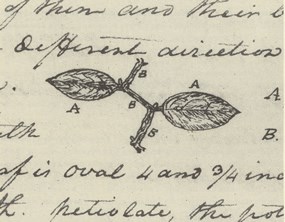 of them and their b
different direction
B
A
A
A
B
B
B.
ath
af is oval 4 and 3/4 inc
th. petiolate, the pet